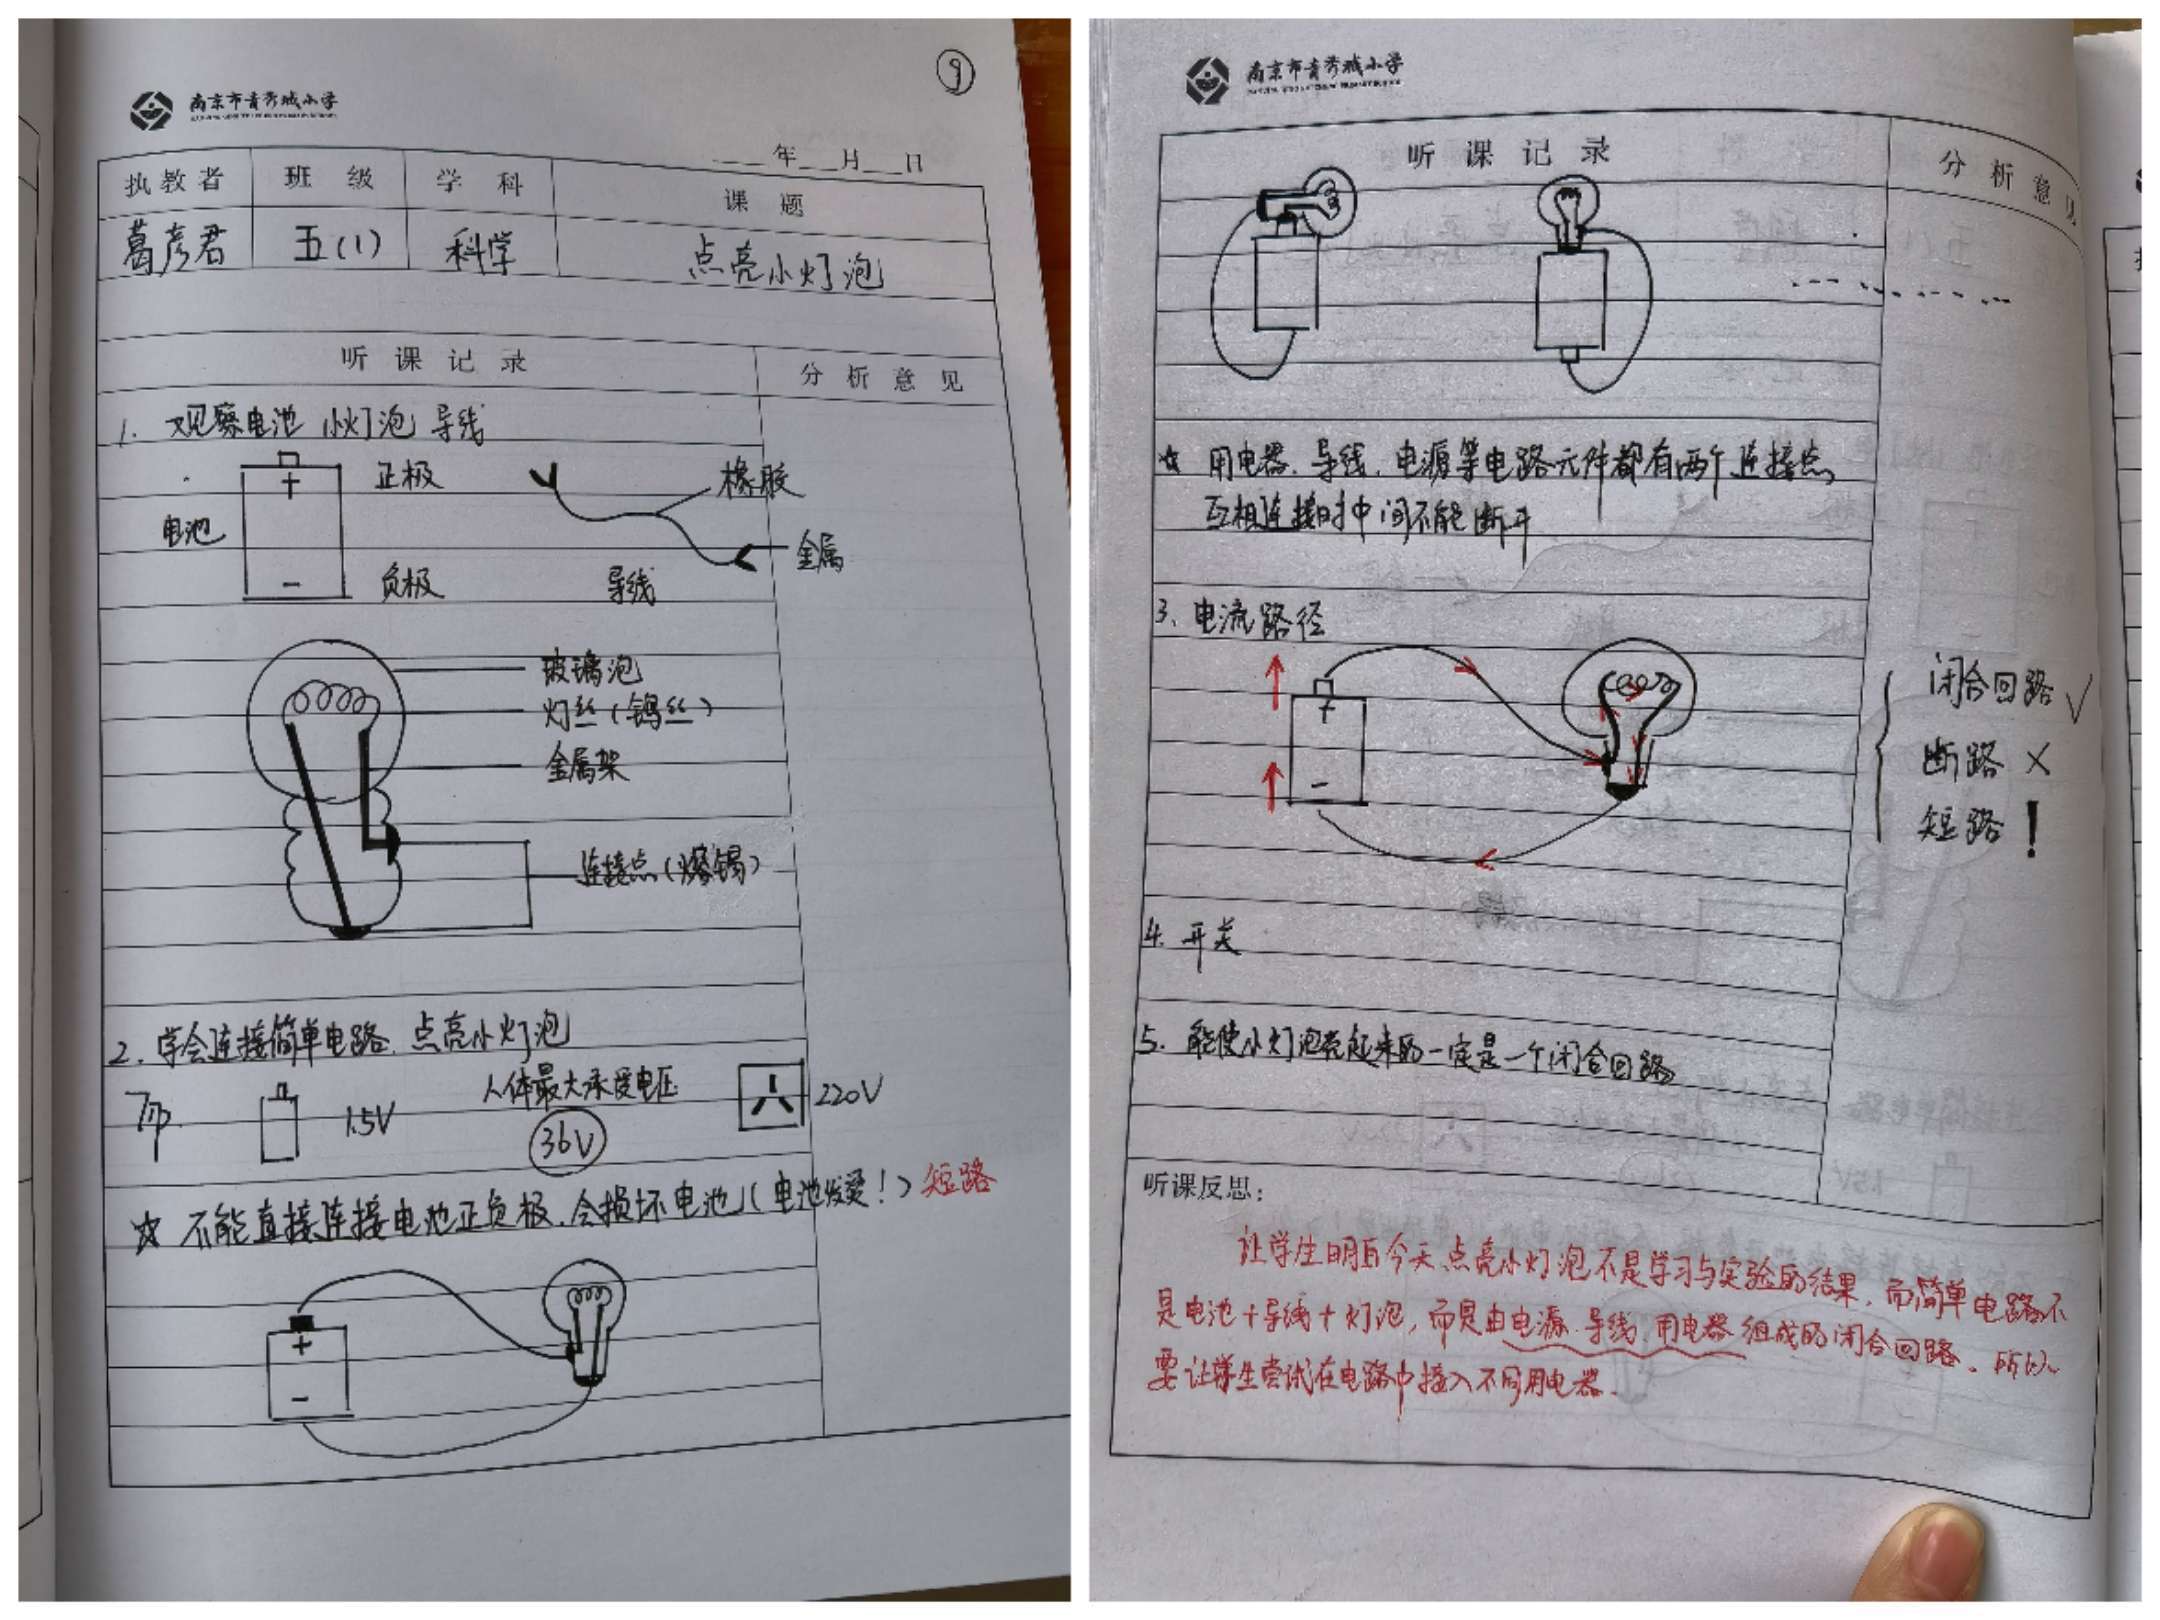 ⑨
南京市青秀城小学
年 月 日
执教者 班级 学科 课题
葛彦君 五(1) 科学 点亮小灯泡
听课记录 分析意见
1. 观察电池 小灯泡 导线
+ 正极 橡胶
电池 金属
- 负极 导线
玻璃泡
灯丝(钨丝)
金属架
连接点(焊锡)
2. 学会连接简单电路. 点亮小灯泡
Tip 1.5V 人体最大承受电压 36V 220V
☆ 不能直接连接电池正负极.会损坏电池(电池发烫!) 短路
+
-
南京市青秀城小学
听课记录 分析意见
☆ 用电器.导线.电源等电路元件都有两个连接点,
互相连接时中间不能断开
3、电流路径
+
-
闭合回路 √
断路 ×
短路 !
4. 开关
5. 能使小灯泡亮起来的一定是一个闭合回路
听课反思:
让学生明白今天点亮小灯泡不是学习与实验的结果,而简单电路不
是电池+导线+灯泡,而是由电源.导线.用电器组成的闭合回路。所以
要让学生尝试在电路中接入不同用电器.